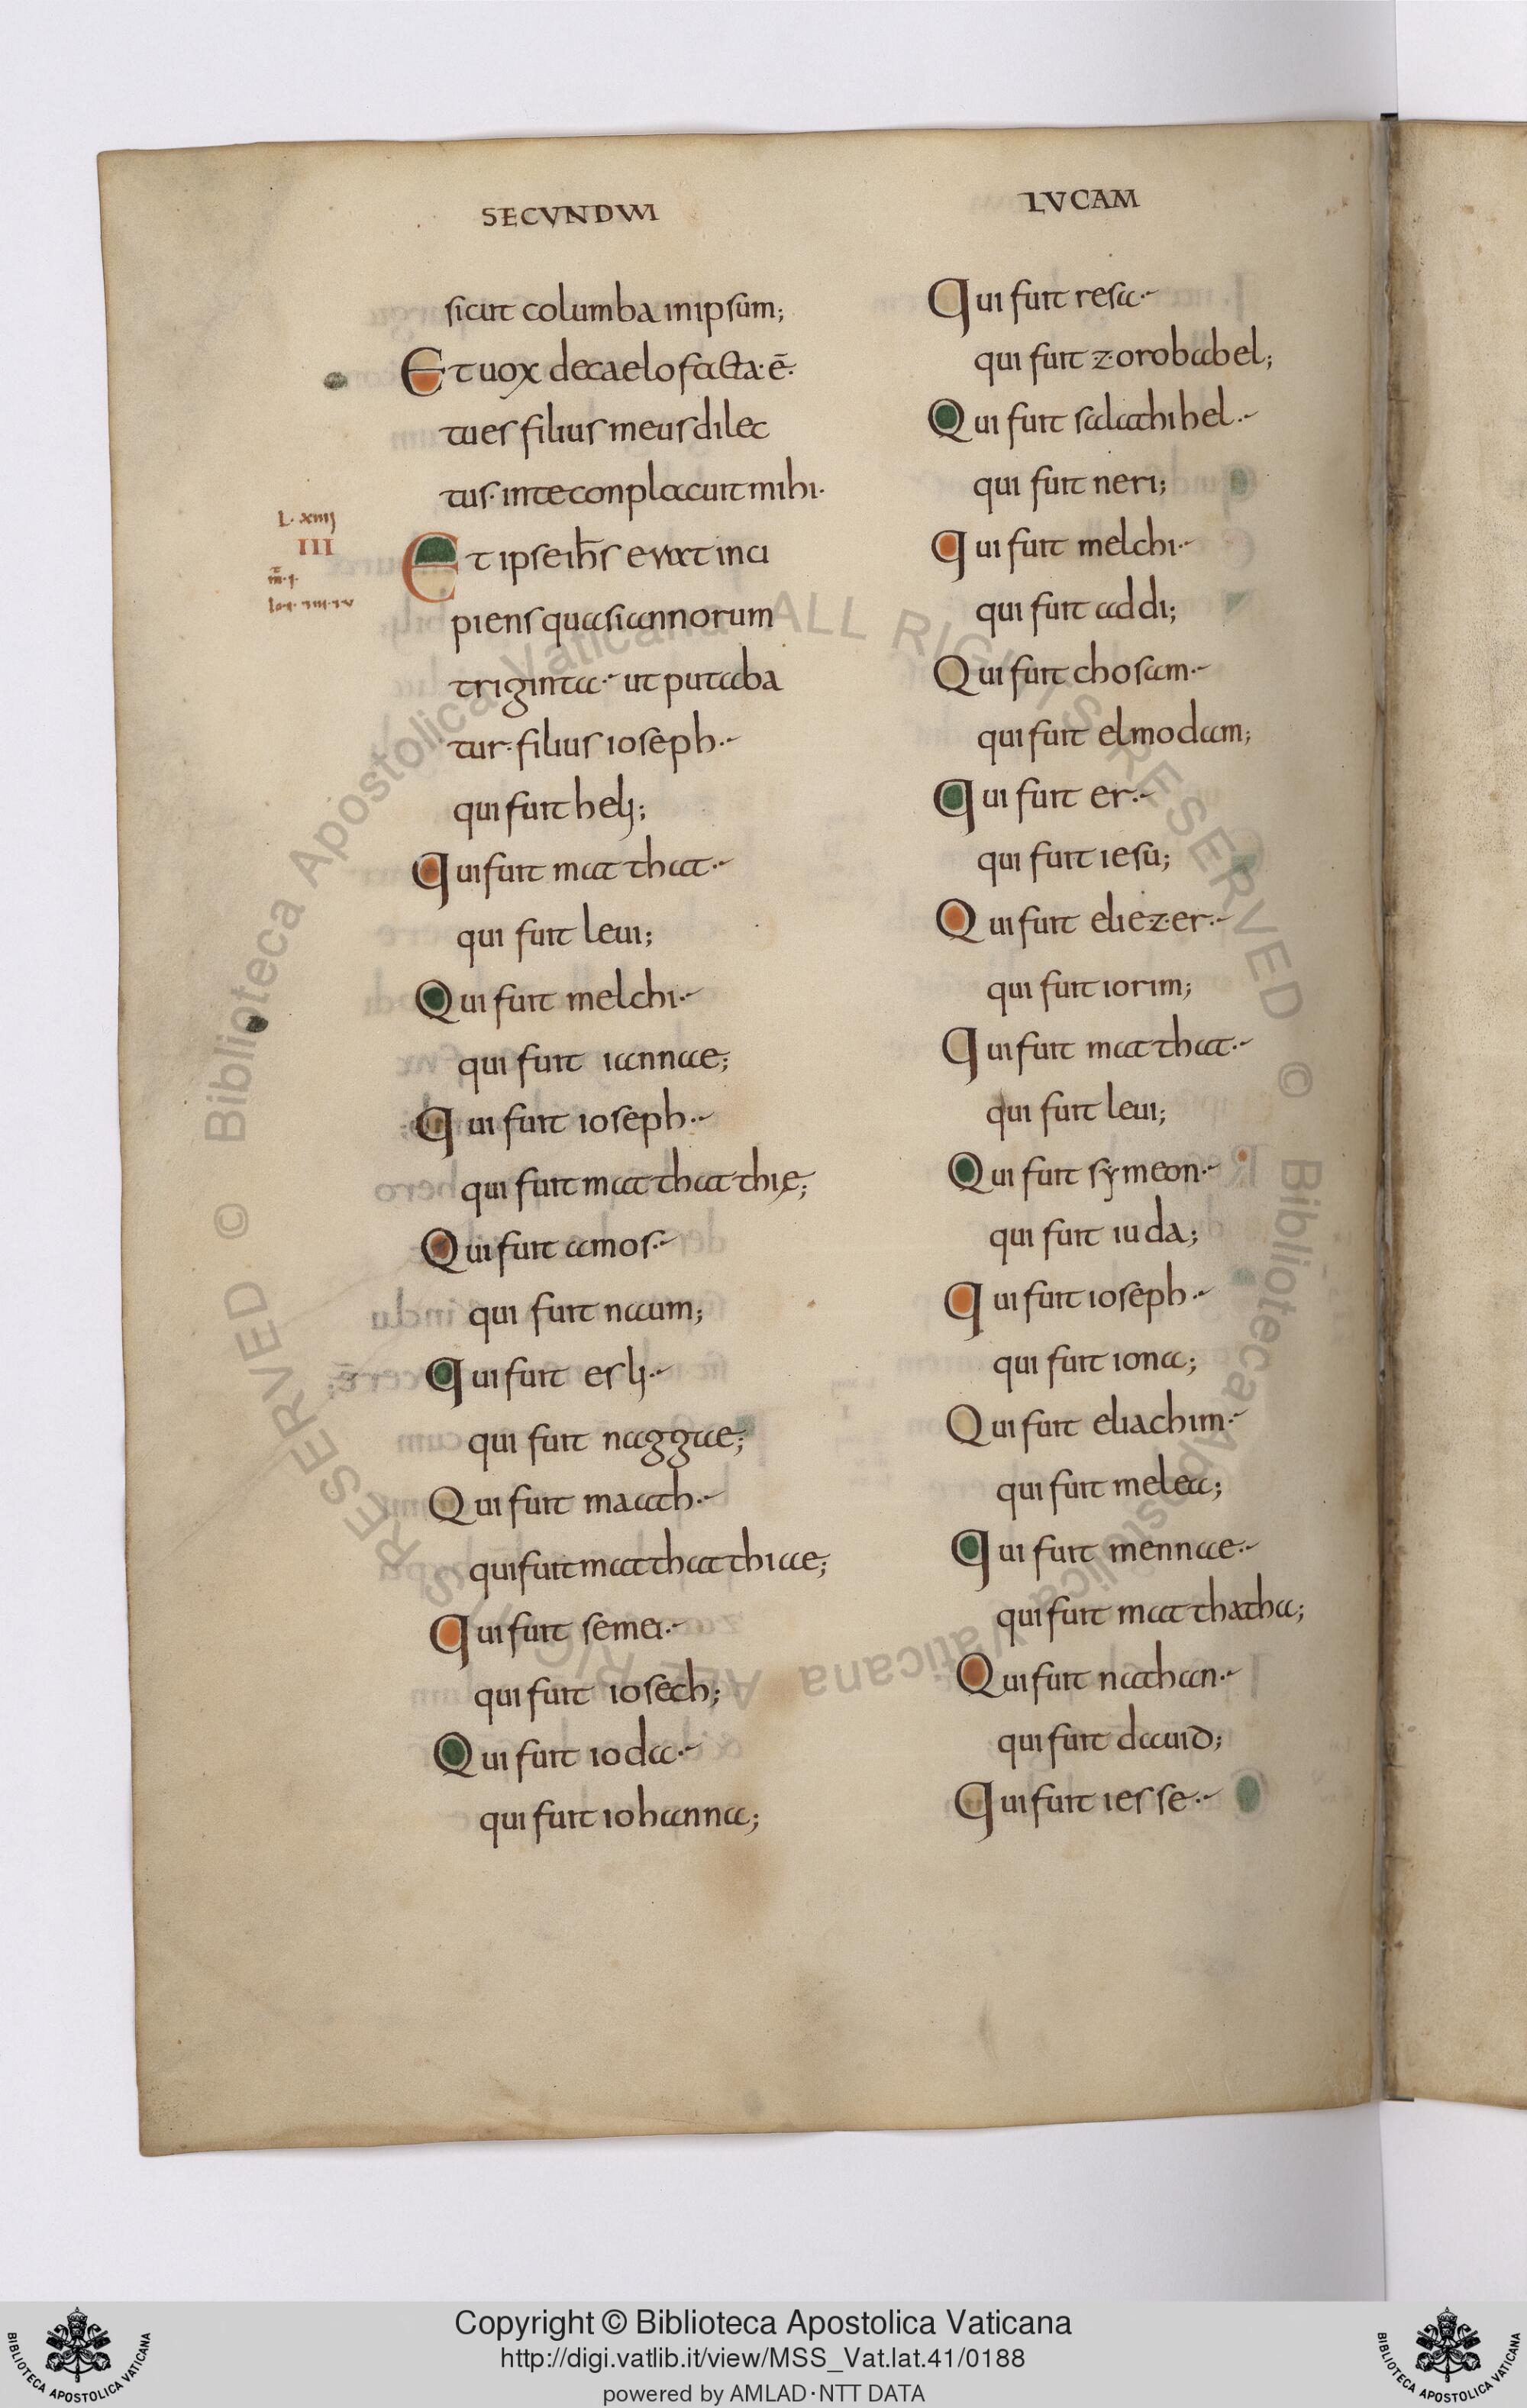 SECUNDUM
LUCAM
sicut columba in ipsum;
Et uox de caelo facta · ē·
tu es filius meus dilec
tus· in te conplacuit mihi·
L· xiiij
III
m̄· i·
Et ipse ih̄s erat inci
piens quasi annorum
triginta·- ut putaba
tur· filius ioseph·-
qui fuit helj;
Qui fuit matthat·-
qui fuit leui;
Qui fuit melchi·-
qui fuit iannae;
Qui fuit ioseph·-
qui fuit matthatthię;
Qui fuit amos·-
qui fuit naum;
Qui fuit eslj·-
qui fuit naggae;
Qui fuit maath·-
qui fuit matthatthiae;
Qui fuit semei·-
qui fuit iosech;
Qui fuit ioda·-
qui fuit iohanna;
Qui fuit resa·-
qui fuit zorobabel;
Qui fuit salathihel·-
qui fuit neri;
Qui fuit melchi·-
qui fuit addi;
Qui fuit chosam·-
qui fuit elmodam;
Qui fuit er·-
qui fuit iesu;
Qui fuit eliezer·-
qui fuit iorim;
Qui fuit matthat·-
qui fuit leui;
Qui fuit sẏmeon·-
qui fuit iuda;
Qui fuit ioseph·-
qui fuit iona;
Qui fuit eliachim·-
qui fuit melea;
Qui fuit mennae·-
qui fuit matthatha;
Qui fuit nathan·-
qui fuit dauid;
Qui fuit iesse·-
© Biblioteca Apostolica Vaticana ALL RIGHTS RESERVED © Biblioteca Apostolica Vaticana ALL RIGHTS RESERVED
Copyright © Biblioteca Apostolica Vaticana
http://digi.vatlib.it/view/MSS_Vat.lat.41/0188
powered by AMLAD·NTT DATA
BIBLIOTECA APOSTOLICA VATICANA
BIBLIOTECA APOSTOLICA VATICANA